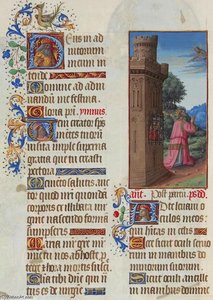 Deus in ad
iutorium
meum in
tende
Domine ad adiu
uandum me festina.
Gloria pri. ymnus.
Veni creator spūs
mentes tuorum
uisita imple superna
gratia que tu creasti
pectora
Memento salutis auc
tor quod nostri quondā
corporis ex illibata vir
gine nascendo formam
sumpseris
Maria mr gre mr
nos ab host. p
tege in hora mortis susci
pe Gloria tibi domine
qui natus es de uirgīe
ant. Post partū. ps.
Ad te leuaui o
culos meos:
qui hītas in celis
Ecce sicut oculi seruo
rum in manibus do
minorum suorum.
Et sicut oculi ancille
in manibus domine